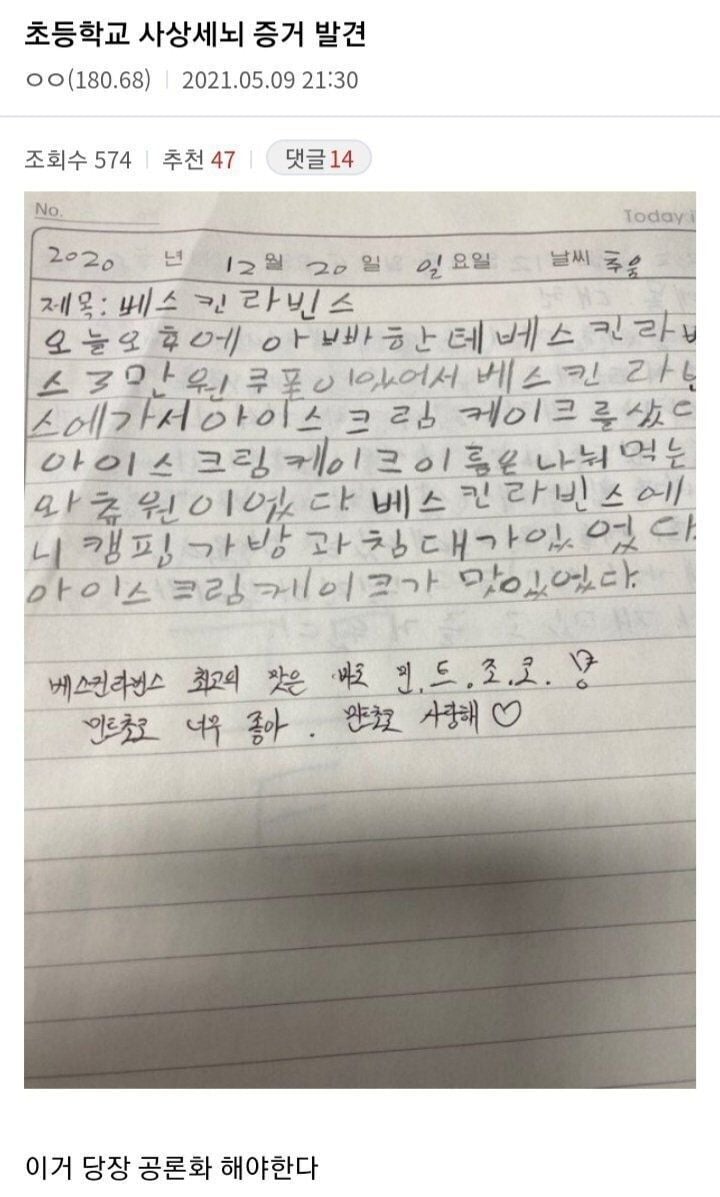 초등학교 사상세뇌 증거 발견
ㅇㅇ(180.68) | 2021.05.09 21:30
조회수 574 | 추천 47 | 댓글 14
No. Today i
2020 년 12월 20일 일요일 날씨 추움
제목: 베스킨라빈스
오늘오후에 아빠한테베스킨라
스 3만원쿠폰이있어서 베스킨 라
스에가서아이스크림 케이크를샀
아이스크림케이크이름은나눠먹는
와츄원이었다 베스킨라빈스에
니 캠핑가방과침대가있었다
아이스크림케이크가 맛있었다.
베스킨라빈스 최고의 맛은 바로 민.트.초.코. !
민트초코 너무 좋아. 민트초코 사랑해♡
이거 당장 공론화 해야한다